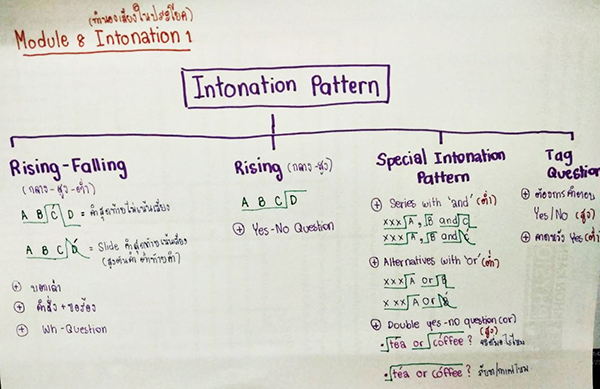 (ทำนองเสียงในประโยค)
Module 8 Intonation 1
Intonation Pattern
Rising-Falling
(กลาง-สูง-ต่ำ)
A B C D = คำสุดท้ายไม่เน้นเสียง
A B C D = Slide คำสุดท้ายเน้นเสียง
(สูงต้นคำ ต่ำท้ายคำ)
บอกเล่า
คำสั่ง + ขอร้อง
Wh-Question
Rising (กลาง-สูง)
A B C D
Yes-No Question
Special Intonation
Pattern
Series with 'and' (ต่ำ)
xxx A, B and C
xxx A, B and C
Alternatives with 'or' (ต่ำ)
xxx A or B
xxx A or B
Double yes-no question (or)
(สูง)
téa or cóffee?
téa or cóffee?
Tag
Question
ต้องการคำตอบ
Yes/No (สูง)
คาดหวัง Yes (ต่ำ)